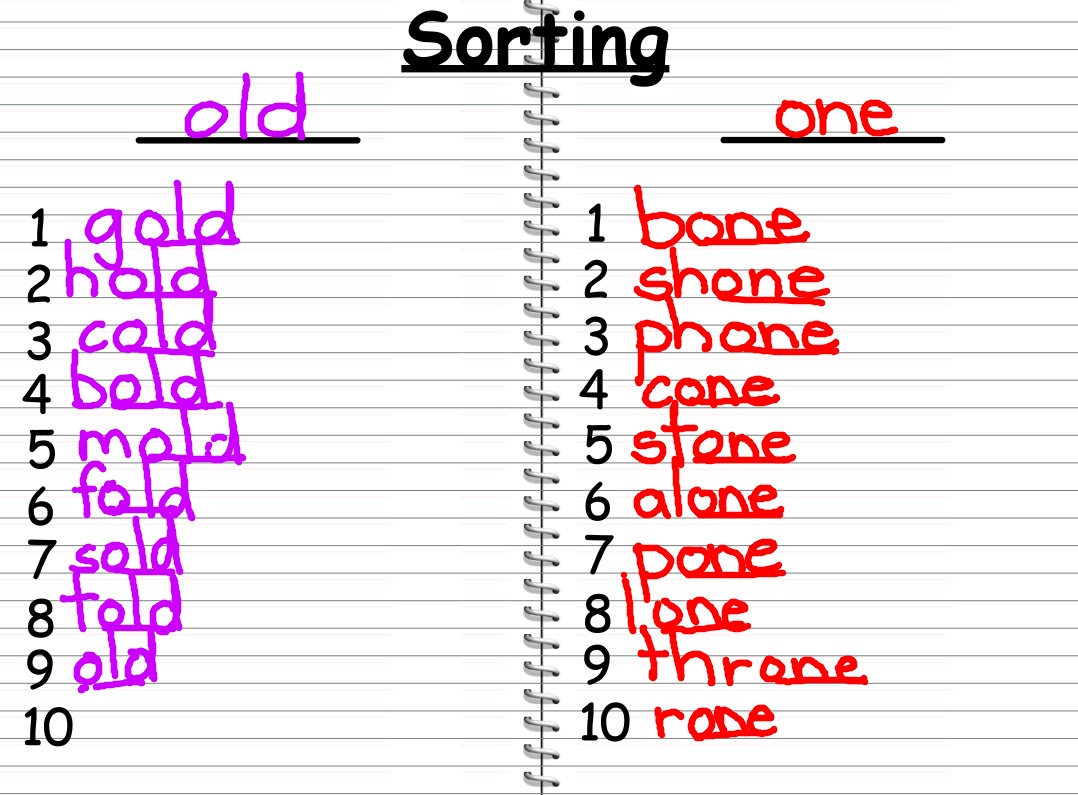 Sorting
old
1 gold
2 hold
3 cold
4 bold
5 mold
6 fold
7 sold
8 told
9 old
10
one
1 bone
2 shone
3 phone
4 cone
5 stone
6 alone
7 pone
8 lone
9 throne
10 rone